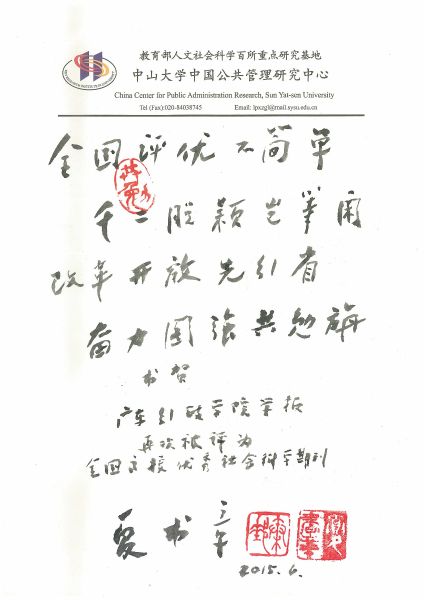 教育部人文社会科学百所重点研究基地
中山大学中国公共管理研究中心
China Center for Public Administration Research, Sun Yat-sen University
Tel (Fax):020-84038745 Email: lpxzgl@mail.sysu.edu.cn
全国评优不简单
千二脱颖岂等闲
改革开放先行省
奋力图强共勉旃
书贺
广东行政学院学报
再次被评为
全国高校优秀社会科学期刊
夏书章
2015.6.